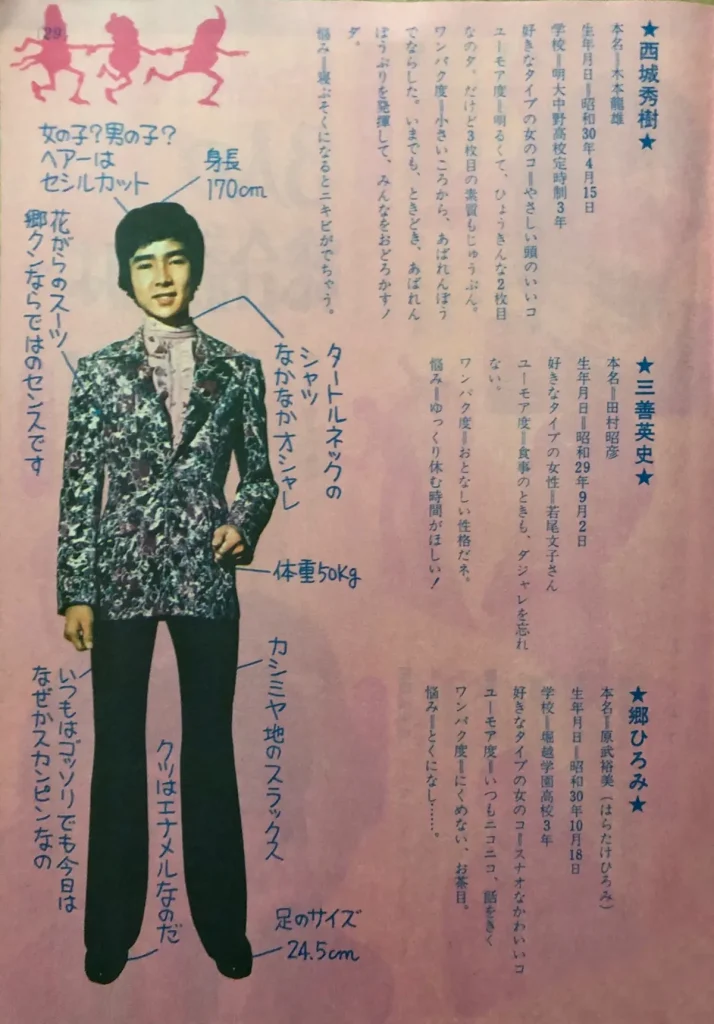 29
★西城秀樹★
本名＝木本龍雄
生年月日＝昭和30年4月15日
学校＝明大中野高校定時制3年
好きなタイプの女のコ＝やさしい頭のいいコ
ユーモア度＝明るくて、ひょうきんな2枚目
なのダ。だけど3枚目の素質もじゅうぶん。
ワンパク度＝小さいころから、あばれんぼう
でならした。いまでも、ときどき、あばれん
ぼうぶりを発揮して、みんなをおどろかすノ
ダ。
悩み＝寝ぶそくになるとニキビがでちゃう。
★三善英史★
本名＝田村昭彦
生年月日＝昭和29年9月2日
好きなタイプの女性＝若尾文子さん
ユーモア度＝食事のときも、ダジャレを忘れ
ない。
ワンパク度＝おとなしい性格だネ。
悩み＝ゆっくり休む時間がほしい！
★郷ひろみ★
本名＝原武裕美（はらたけひろみ）
生年月日＝昭和30年10月18日
学校＝堀越学園高校3年
好きなタイプの女のコ＝スナオなかわいいコ
ユーモア度＝いつもニコニコ、話をきく
ワンパク度＝にくめない、お茶目。
悩み＝とくになし……。
女の子？男の子？
ヘアーは
セシルカット
身長
170cm
花がらのスーツ
郷クンならではのセンスです
タートルネックの
シャツ
なかなかオシャレ
体重50Kg
カシミヤ地のスラックス
いつもはゴッソリでも今日は
なぜかスカンピンなの
クツはエナメルなのだ
足のサイズ
24.5cm